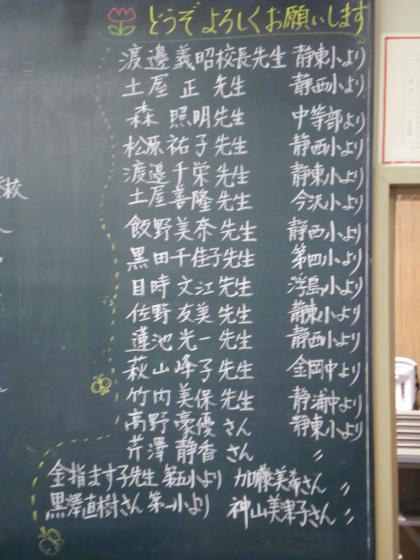 どうぞよろしくお願いします
渡邉義昭校長先生 静東小より
土屋 正 先生 静西小より
森 照明先生 中等部より
松原祐子先生 静西小より
渡邉千栄先生 静東小より
土屋善隆先生 今沢小より
飯野美奈先生 静西小より
黒田千佳子先生 第四小より
目時文江先生 浮島小より
佐野友美先生 静東小より
蓮池光一先生 静西小より
萩山峰子先生 金岡中より
竹内美保先生 静浦中より
高野豪優さん 静東小より
芹澤静香さん 〃
金指ます子先生 第五小より 加藤美希さん 〃
黒澤直樹さん 第一小より 神山美津子さん 〃